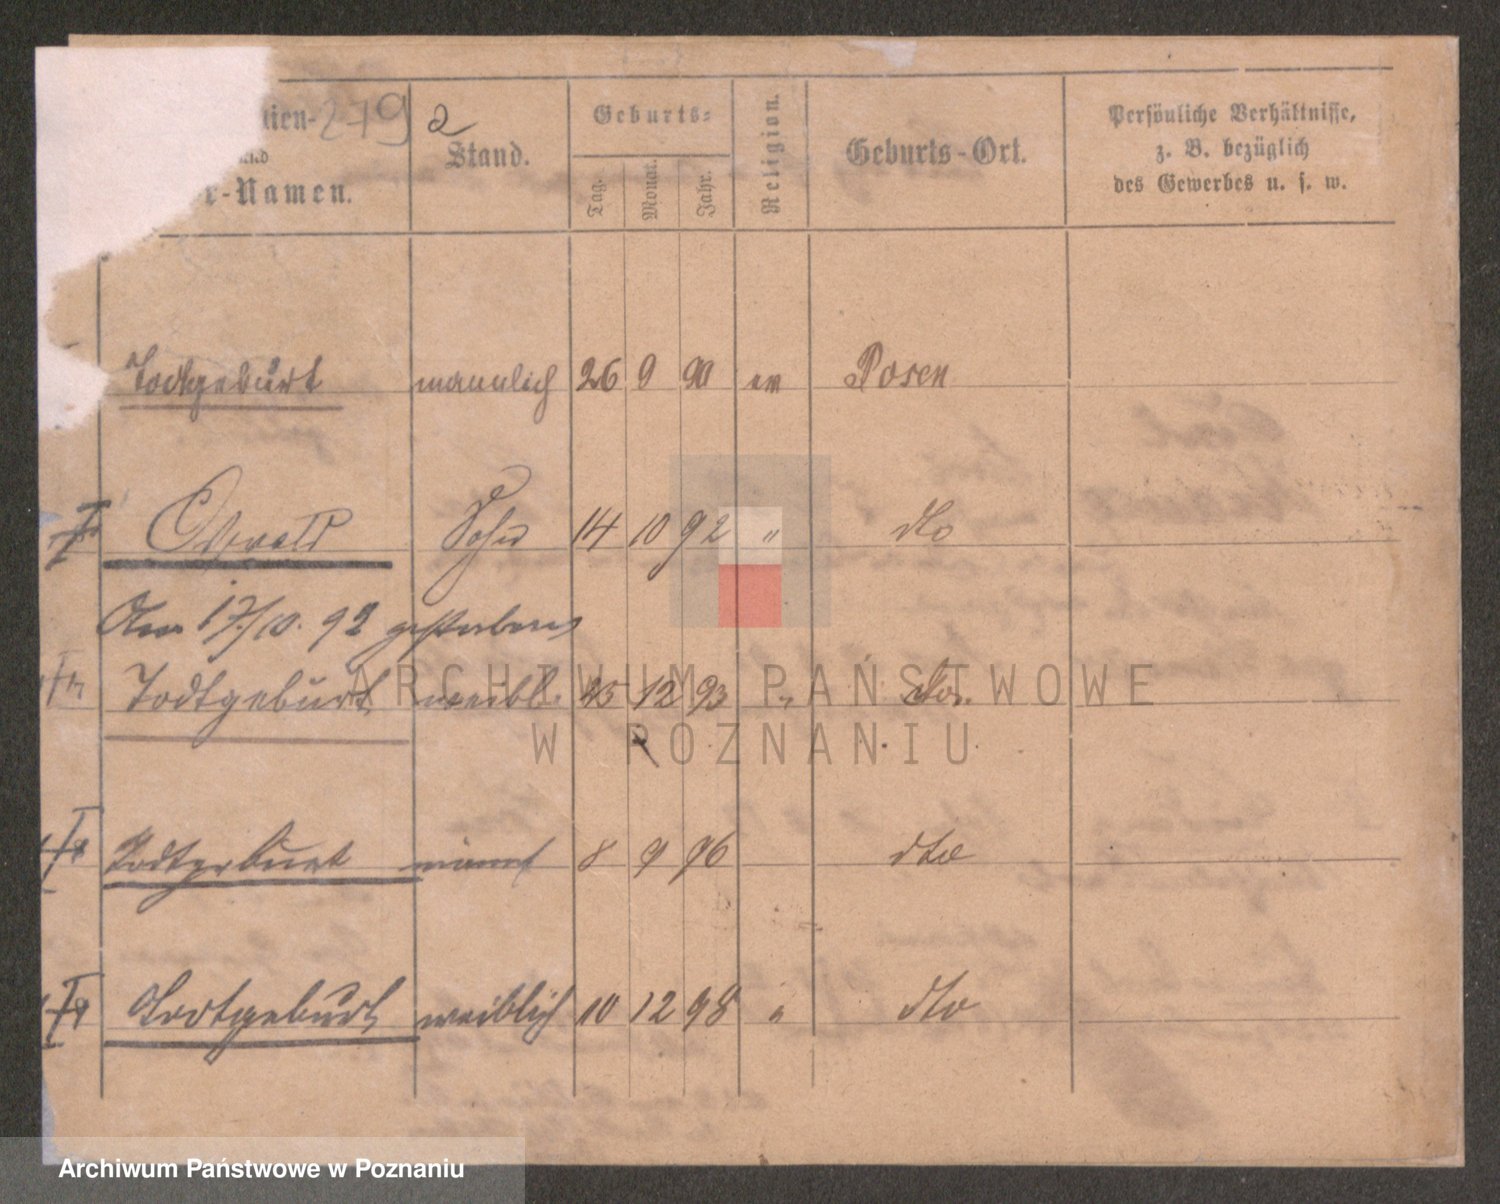 279 a
tien-
und
r-Namen.
Stand.
Geburts-
Tag.
Monat.
Jahr.
Religion.
Geburts-Ort.
Persönliche Verhältnisse,
z. B. bezüglich
des Gewerbes u. s. w.
Todtgeburt männlich 26 9 90 ev Posen
Oswald Sohn 14 10 92 " dto
Am 17./10. 92 gestorben
Todtgeburt weibl. 25 12 93 " do.
Todtgeburt männl 8 9 96 dto
Todtgeburt weiblich 10 12 98 " dto
ARCHIWUM PAŃSTWOWE
W POZNANIU
Archiwum Państwowe w Poznaniu